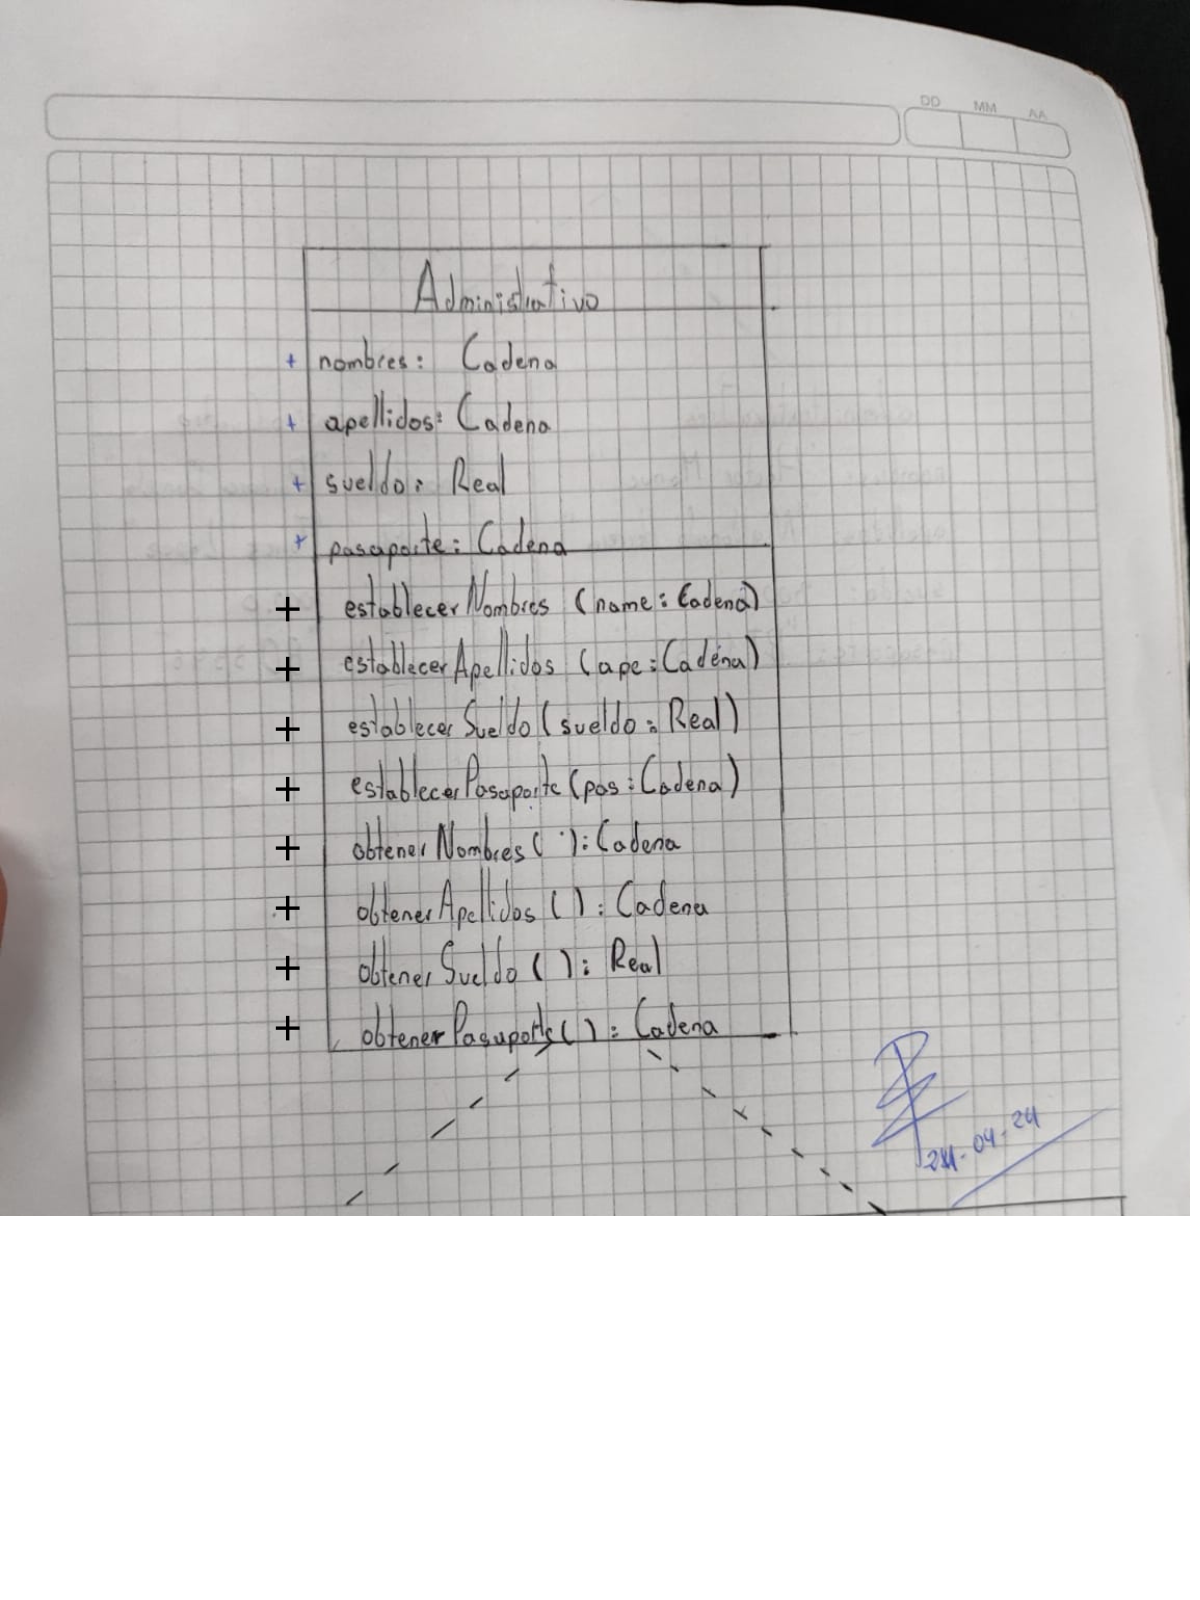 DD MM AA
Administrativo
+ nombres: Cadena
+ apellidos: Cadena
+ sueldo: Real
+ pasaporte: Cadena
+ establecerNombres (name: Cadena)
+ establecerApellidos (ape: Cadena)
+ establecerSueldo (sueldo: Real)
+ establecerPasaporte (pas: Cadena)
+ obtenerNombres ( ): Cadena
+ obtenerApellidos ( ): Cadena
+ obtenerSueldo ( ): Real
+ obtenerPasaporte ( ): Cadena
24-04-24